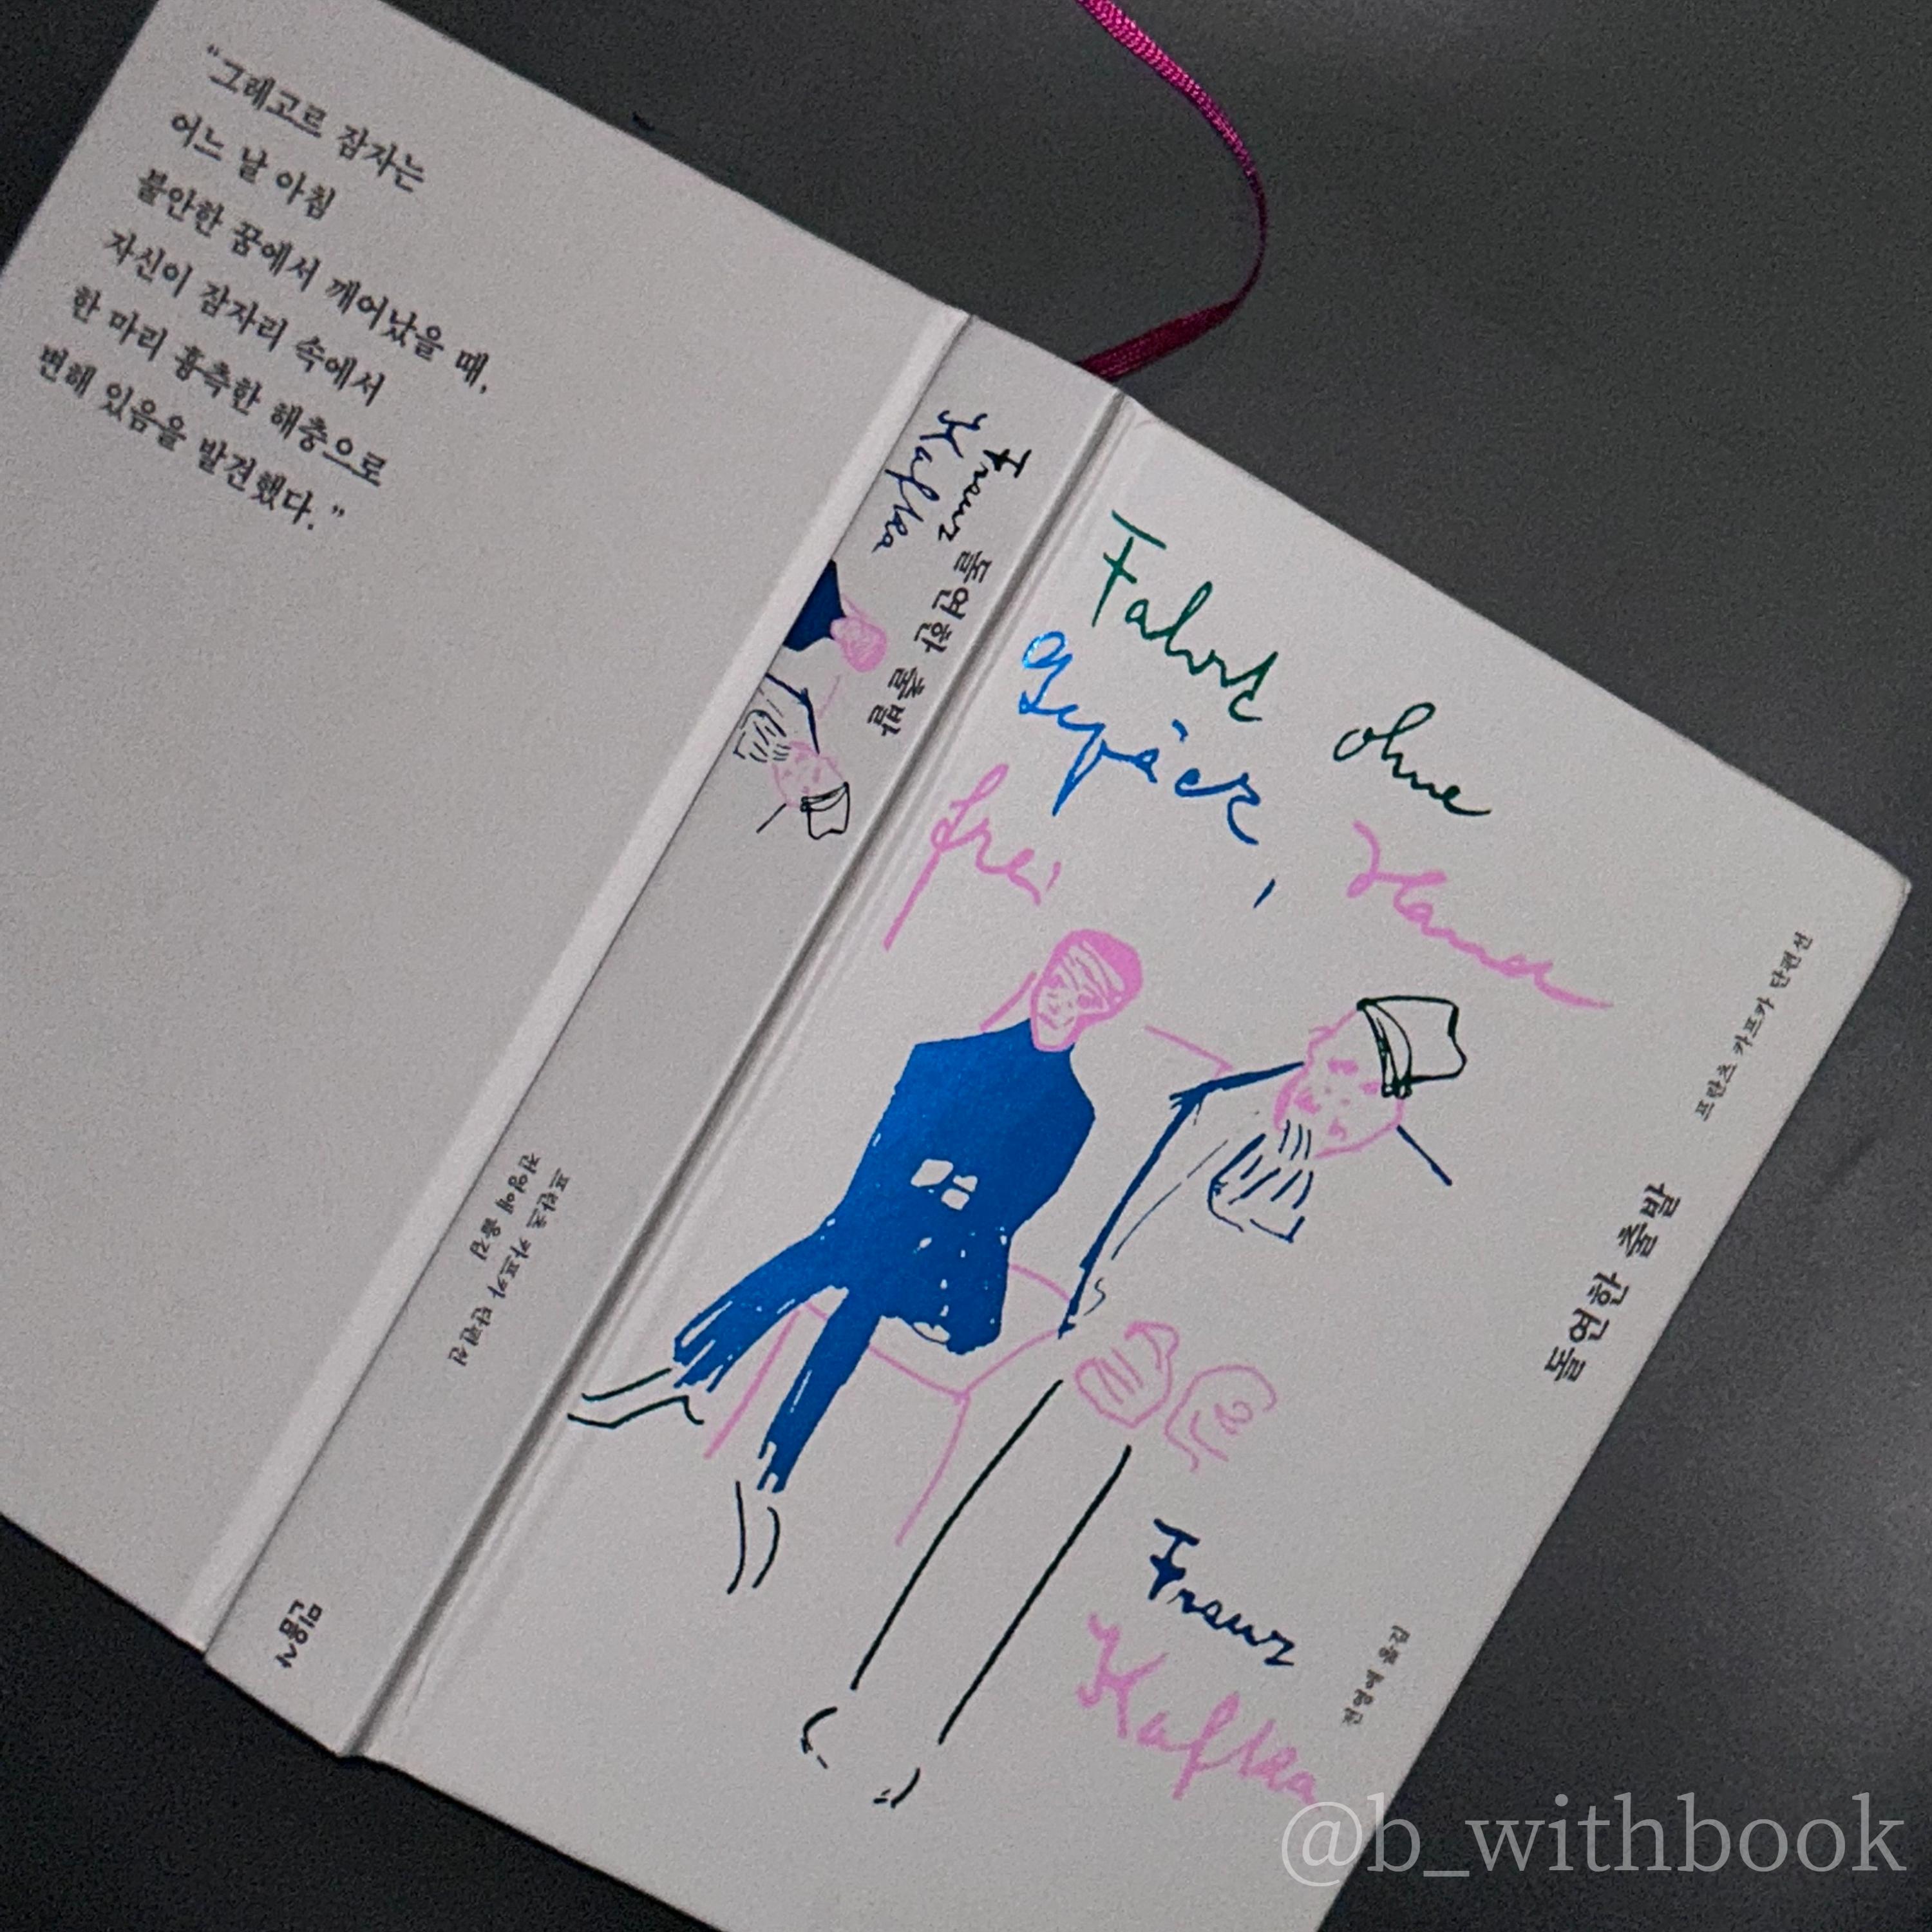 “그레고르 잠자는
어느 날 아침
불안한 꿈에서 깨어났을 때,
자신이 잠자리 속에서
한 마리 흉측한 해충으로
변해 있음을 발견했다.”
Franz
Kafka
돌연한 출발
프란츠 카프카 단편선
전영애 옮김
민음사
Fahrt ohne
Gepäck, Hand
frei
프란츠 카프카 단편선
돌연한 출발
전영애 옮김
Franz
Kafka
@b_withbook